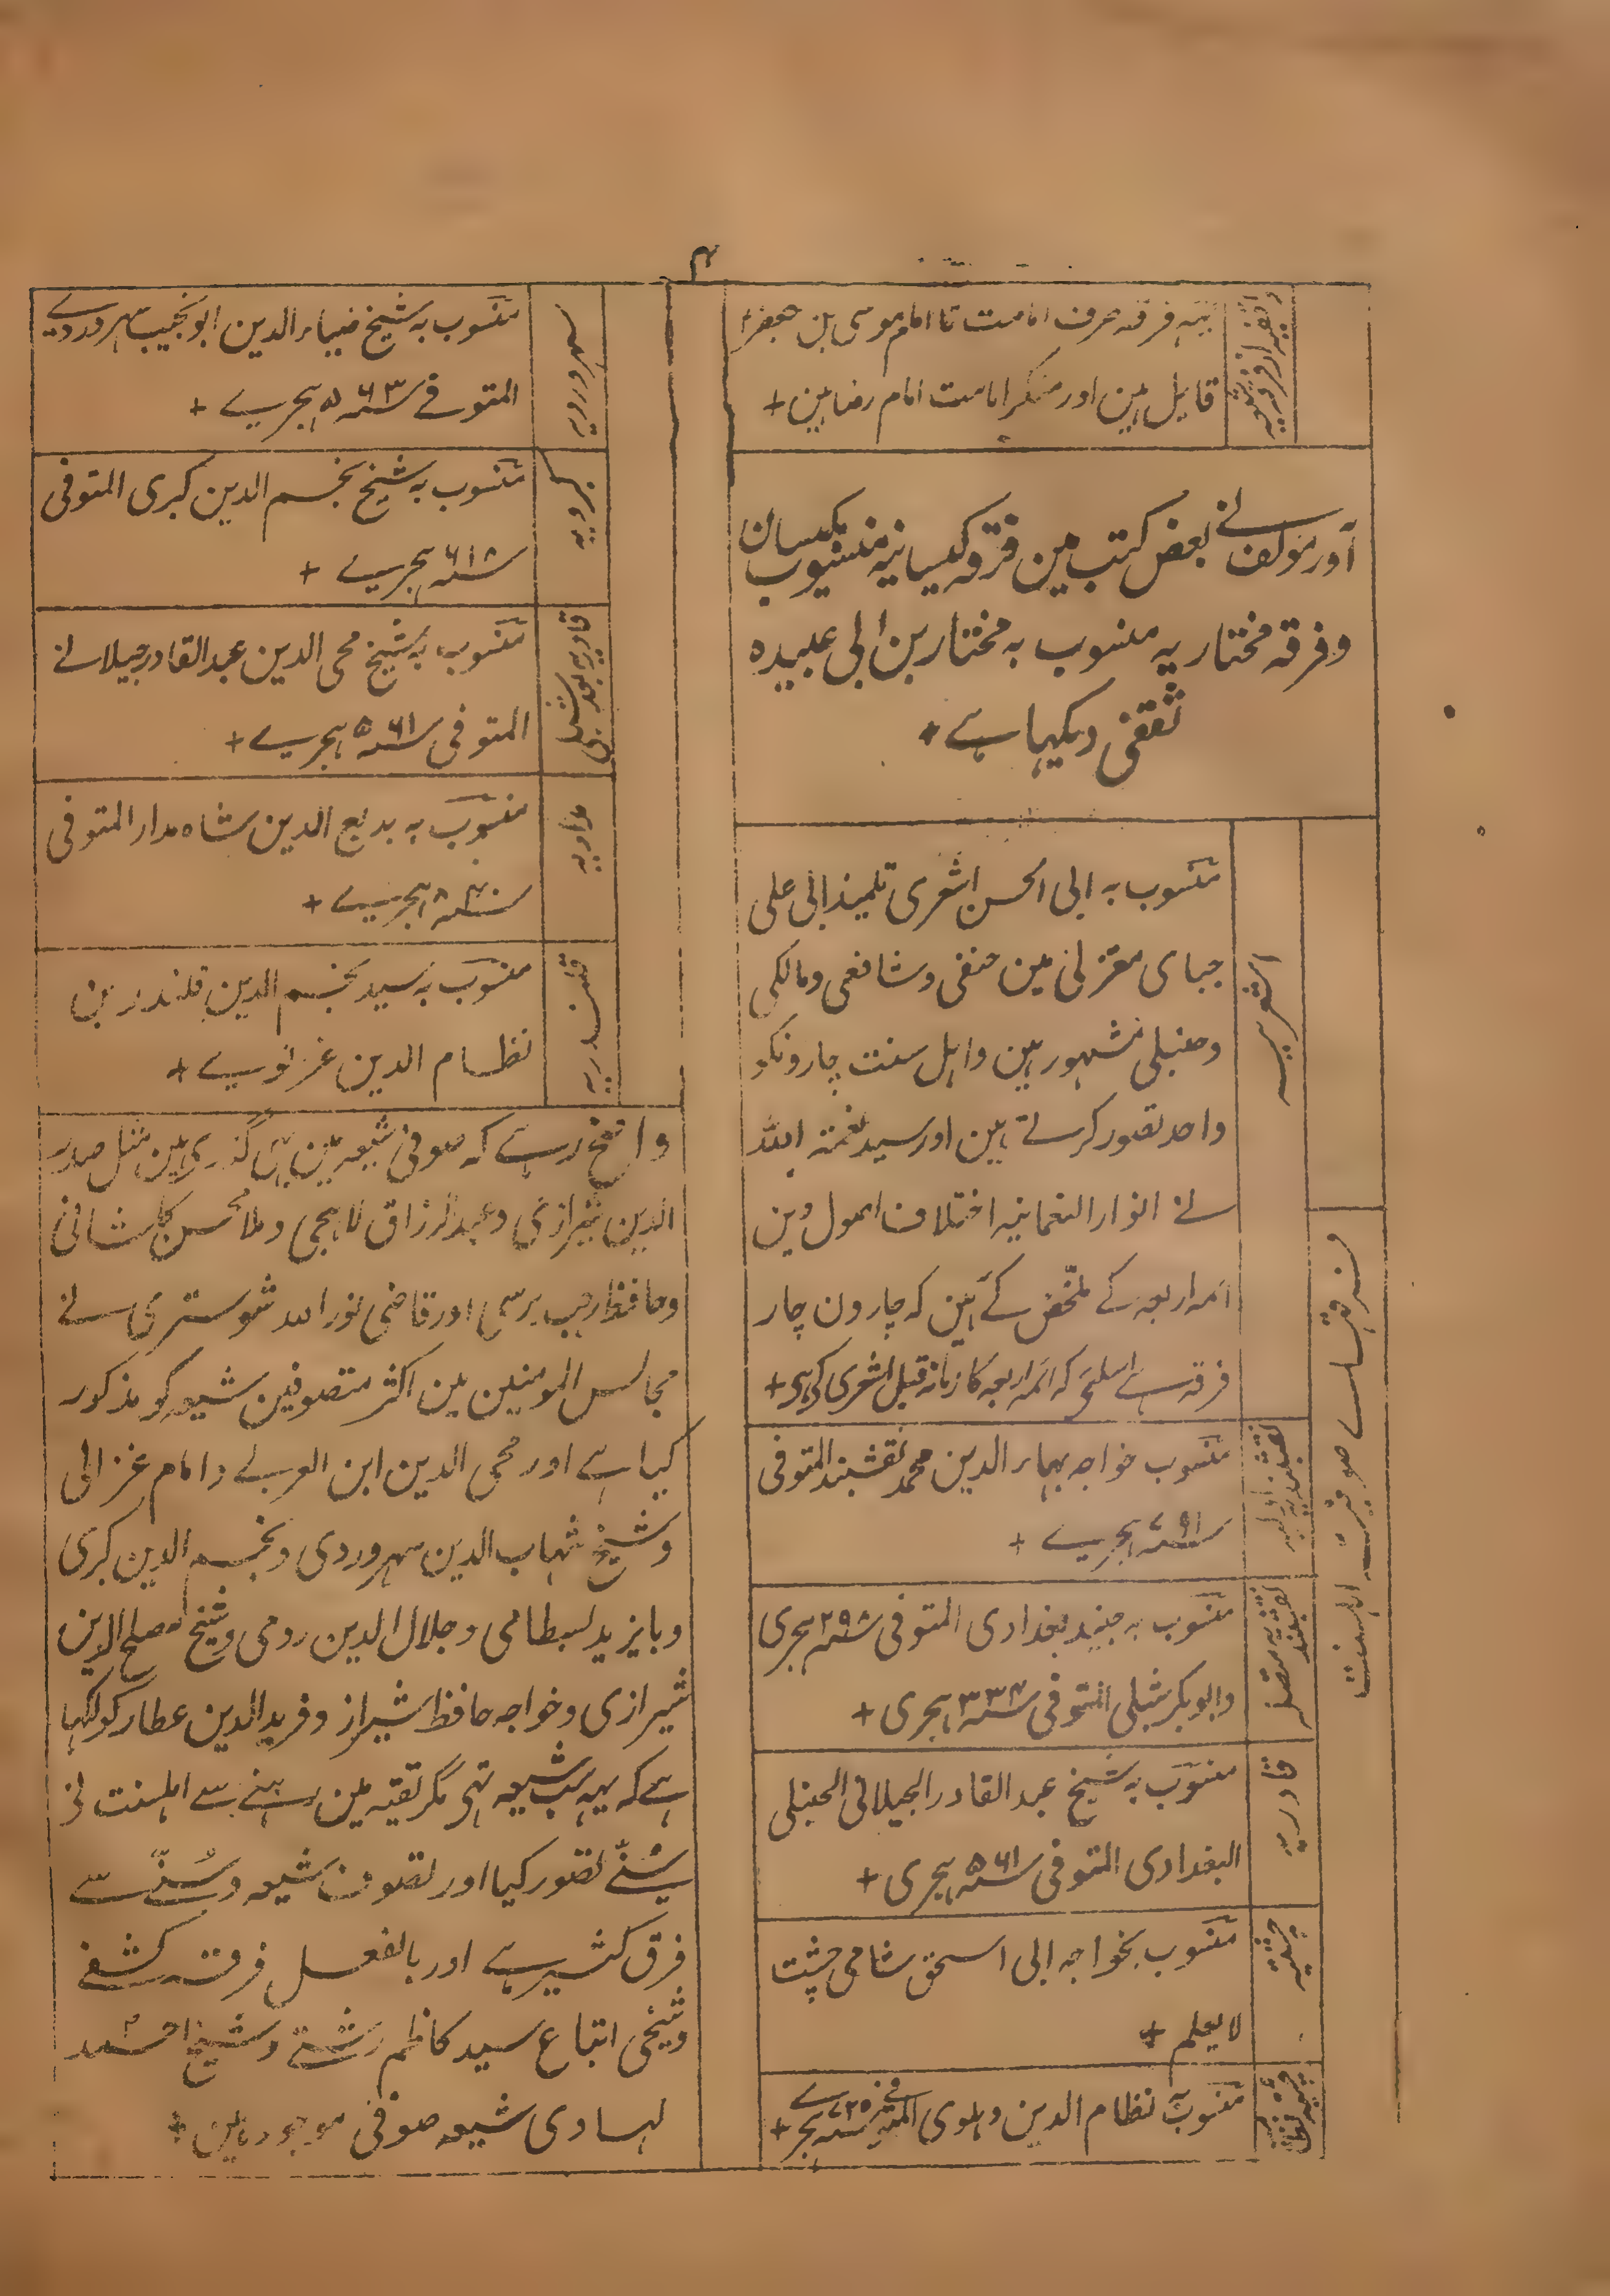 ۴
واقفیہ از فرقہ شیعہ
یہہ فرقہ صرف امامت تا امام موسی بن جعفر
قایل ہین اور منکر امامت امام رضا ہین +
اور مولف نے بعض کتب مین فرقہ کیسانیہ منسوب بکیسان
و فرقہ مختاریہ منسوب به مختار بن ابی عبیدہ
ثقفی دیکہا ہے +
فرقہاے صوفیہ اہلسنت
اشعریہ
منسوب به ابی الحسن اشعری تلمیذ ابی علی
جبای معتزلی مین حنفی و شافعی و مالکی
و حنبلی مشہور ہین و اہل سنت چارونکو
واحد تصور کرتے ہین اور سید نعمة اللہ
نے انوار النعمانیہ اختلاف اصول دین
ائمہ اربعہ کے ملخص کئے ہین کہ چارون چار
فرقہ ہے اسلئے کہ ائمہ اربعہ کا زمانہ قبل اشعری کی ہی +
نقشبندیہ
منسوب خواجہ بہاء الدین محمد نقشبند المتوفی
سنہ ۷۹۱ ہجریے +
نقشبندیہ متصلہ
منسوب بہ جنید بغدادی المتوفی سنہ ۲۹۸ ہجری
و ابوبکر شبلی المتوفی سنہ ۳۳۴ ہجری +
قادریہ
منسوب به شیخ عبد القادر الجیلانی الحنبلی
البغدادی المتوفی سنہ ۵۶۱ ہجری +
چشتیہ
منسوب بخواجہ ابی اسحق شامی چشت
لا یعلم +
چشتیہ نظامیہ
منسوب نظام الدین دہلوی المتوفی سنہ ۷۲۵ ہجرے +
سہروردیہ
منسوب به شیخ ضیاء الدین ابو نجیب سہروردے
المتوفے سنہ ۵۶۳ ہجریے +
کبرویہ
منسوب به شیخ نجم الدین کبری المتوفی
سنہ ۶۱۸ ہجریے +
قادریہ بعد شبلی
منسوب به شیخ محی الدین عبد القادر جیلانے
المتوفی سنہ ۵۶۱ ہجریے +
مداریہ
منسوب به بدیع الدین شاہ مدار المتوفی
سنہ ۸۴۰ ہجریے +
قلندریہ
منسوب به سید نجم الدین قلندر بن
نظام الدین غزنویے +
واضح رہے کہ صوفی شیعہ مین بہی گذری ہین مثل صدر
الدین شیرازی و عبد الرزاق لاہجی و ملا محسن کاشانی
و حافظ رجب برسی اور قاضی نور اللہ شوستری نے
مجالس المومنین مین اکثر متصوفین شیعہ کو مذکور
کیا ہے اور محی الدین ابن العربے و امام غزالی
و شیخ شہاب الدین سہروردی و نجم الدین کبری
و بایزید بسطامی و جلال الدین رومی و شیخ مصلح الدین
شیرازی و خواجہ حافظ شیراز و فرید الدین عطار کو لکہا
ہے کہ یہہ سب شیعہ تہی مگر تقیہ مین رہنے سے اہلسنت نے
سُنّے تصور کیا اور تصوف شیعہ و سُنّے سے
فرق کثیر ہے اور بالفعل فرقہ کشفے
و شیخی اتباع سید کاظم رشتے و شیخ احمد
لہسادی شیعہ صوفی موجود ہین +